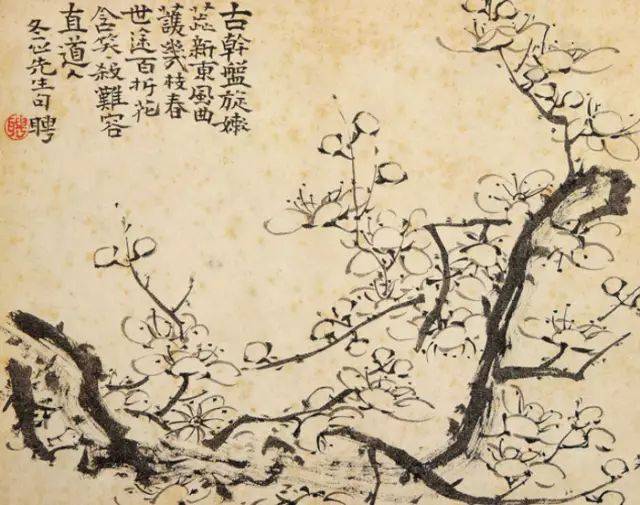 古幹盤旋嫩
蕊新東風曲
護幾枝春
世途百折花
含笑殺難容
直道人
冬心先生句 聘